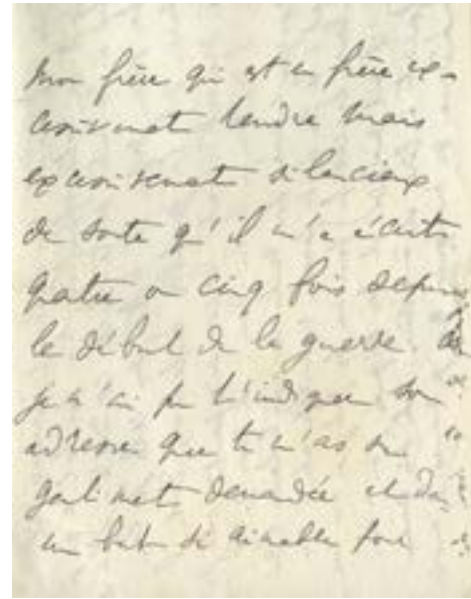 Mon frère qui est un frère ex-
cessivement tendre mais
excessivement silencieux
de sorte qu'il m'a écrit
quatre ou cinq fois depuis
le début de la guerre.
je n'ai pu t'indiquer son
adresse que tu m'as si
gentiment demandée et dans
un but si aimable pour